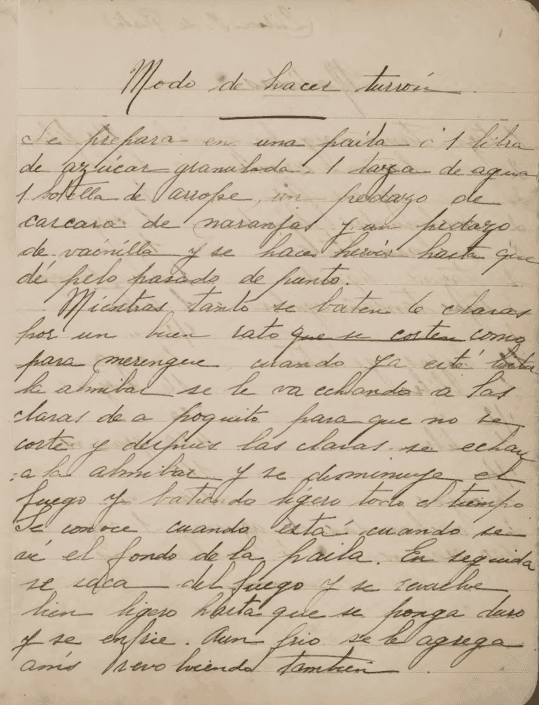 Modo de hacer turrón
Se prepara en una paila ó 1 libra
de azúcar granulada, 1 taza de agua
1 botella de arrope, un pedazo de
carcara de naranjas y un pedazo
de vainilla y se hace hervir hasta que
dé pelo pasado de punto.
Mientras tanto se baten 6 claras
por un buen rato que se corten como
para merengue cuando ya está lista
la almibar se le va echando a las
claras de a poquito para que no se
corte y despues las claras se echan
a la almibar y se desminuye el
fuego y batiendo ligero todo el tiempo.
Se conoce cuando está cuando se
vé el fondo de la paila. En seguida
se saca del fuego y se revuelve
bien ligero hasta que se ponga duro
y se enfrie. Aun frio se le agrega
anís revolviendo tambien.